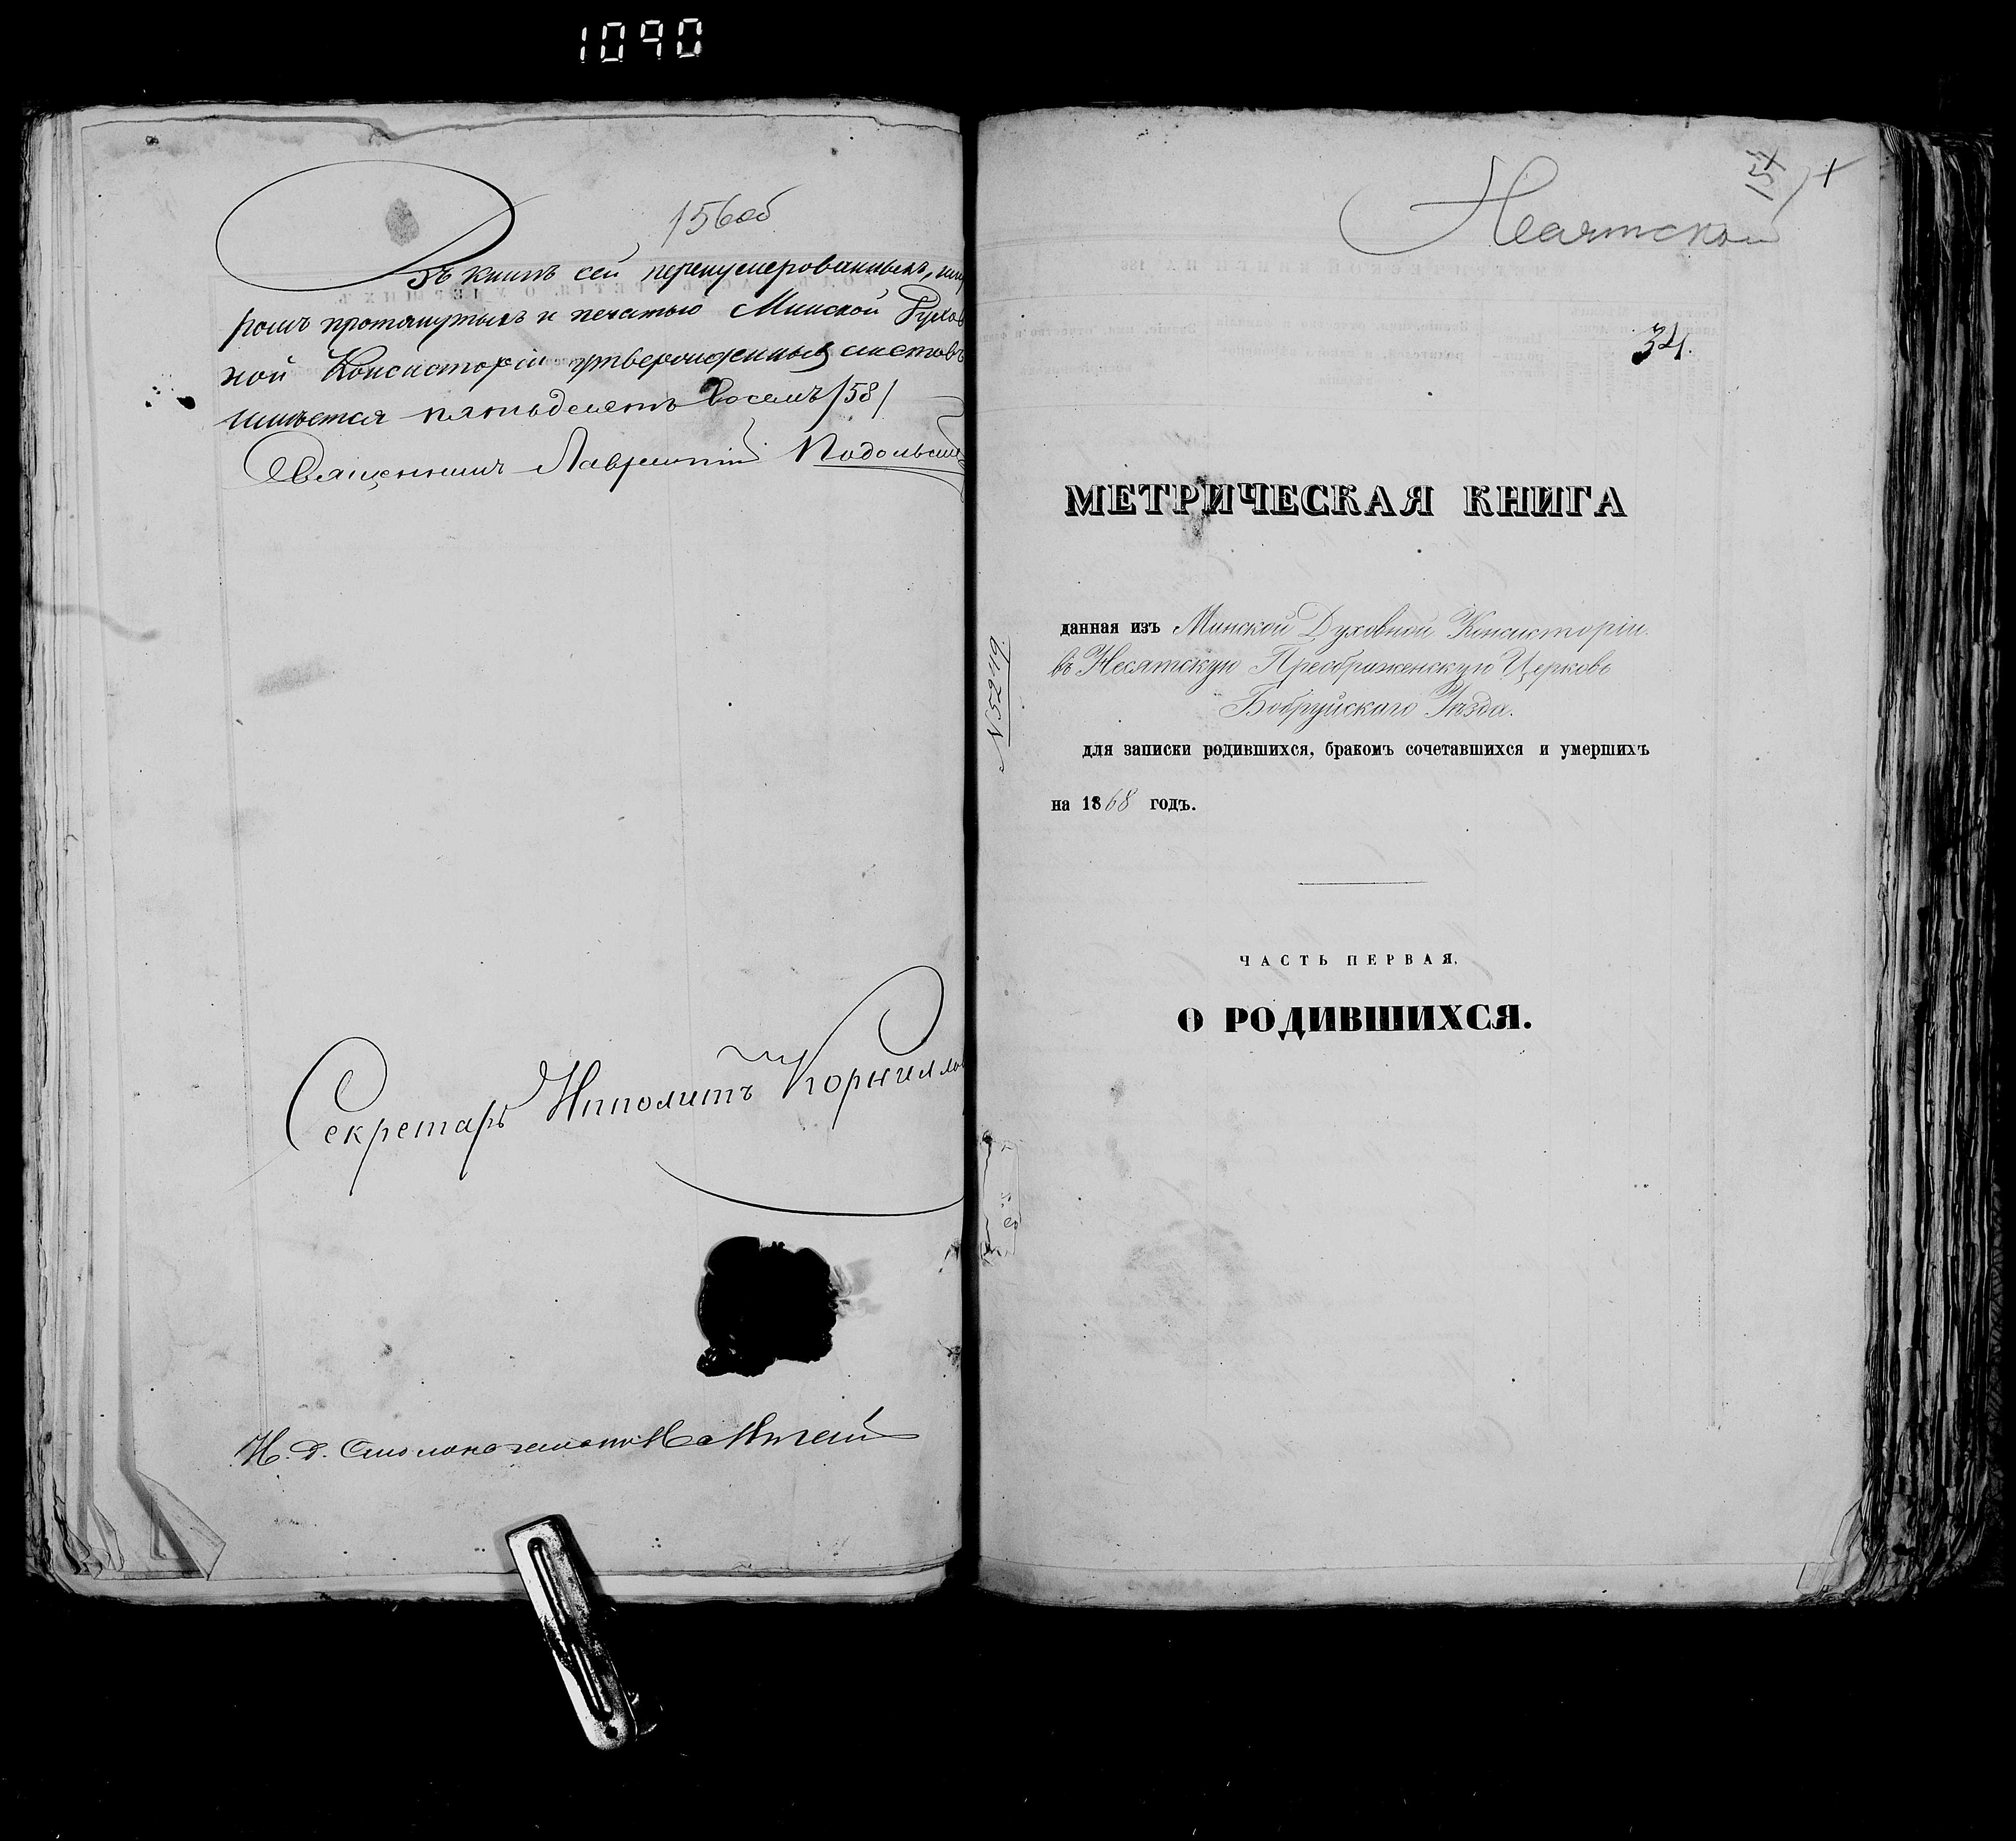 1090
156об
Въ книгѣ сей перенумерованныхъ, шну
ромъ протянутыхъ и печатью Минской Духов
ной Консисторіи утвержденныхъ листовъ
имѣется пятьдесятъ восемь /58/
Священникъ Лаврентій Подольскій
Секретарь Ипполитъ Корнилло
И. д. Столоначальника
Несятской
157
34.
МЕТРИЧЕСКАЯ КНИГА
данная изъ Минской Духовной Консисторіи
въ Несятскую Преображенскую Церковь
Бобруйскаго Уѣзда.
N 5249
для записки родившихся, бракомъ сочетавшихся и умершихъ
на 1868 годъ.
ЧАСТЬ ПЕРВАЯ.
О РОДИВШИХСЯ.